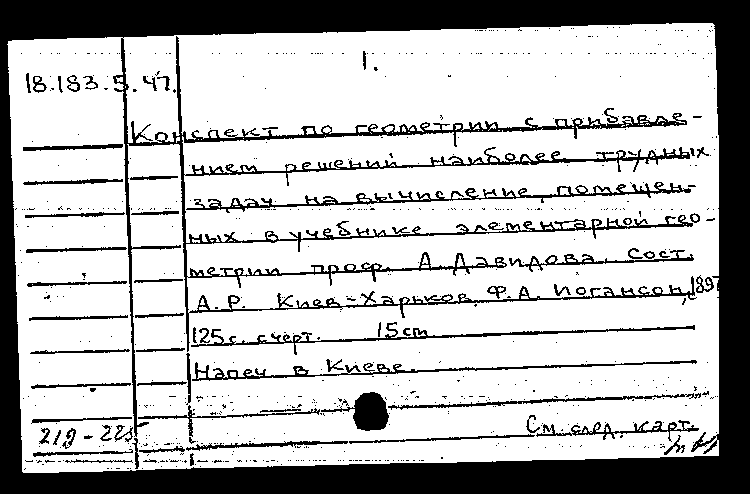 1.
18.183.5.47.
Конспект по геометрии с прибавле-
нием решений наиболее трудных
задач на вычисление, помещен-
ных в учебнике элементарной гео-
метрии проф. А. Давидова. Сост.
А. Р. Киев-Харьков, Ф. А. Иогансон, 1897
125 с. с черт. 15 cm
Напеч. в Киеве.
219-225
См. след. карт.